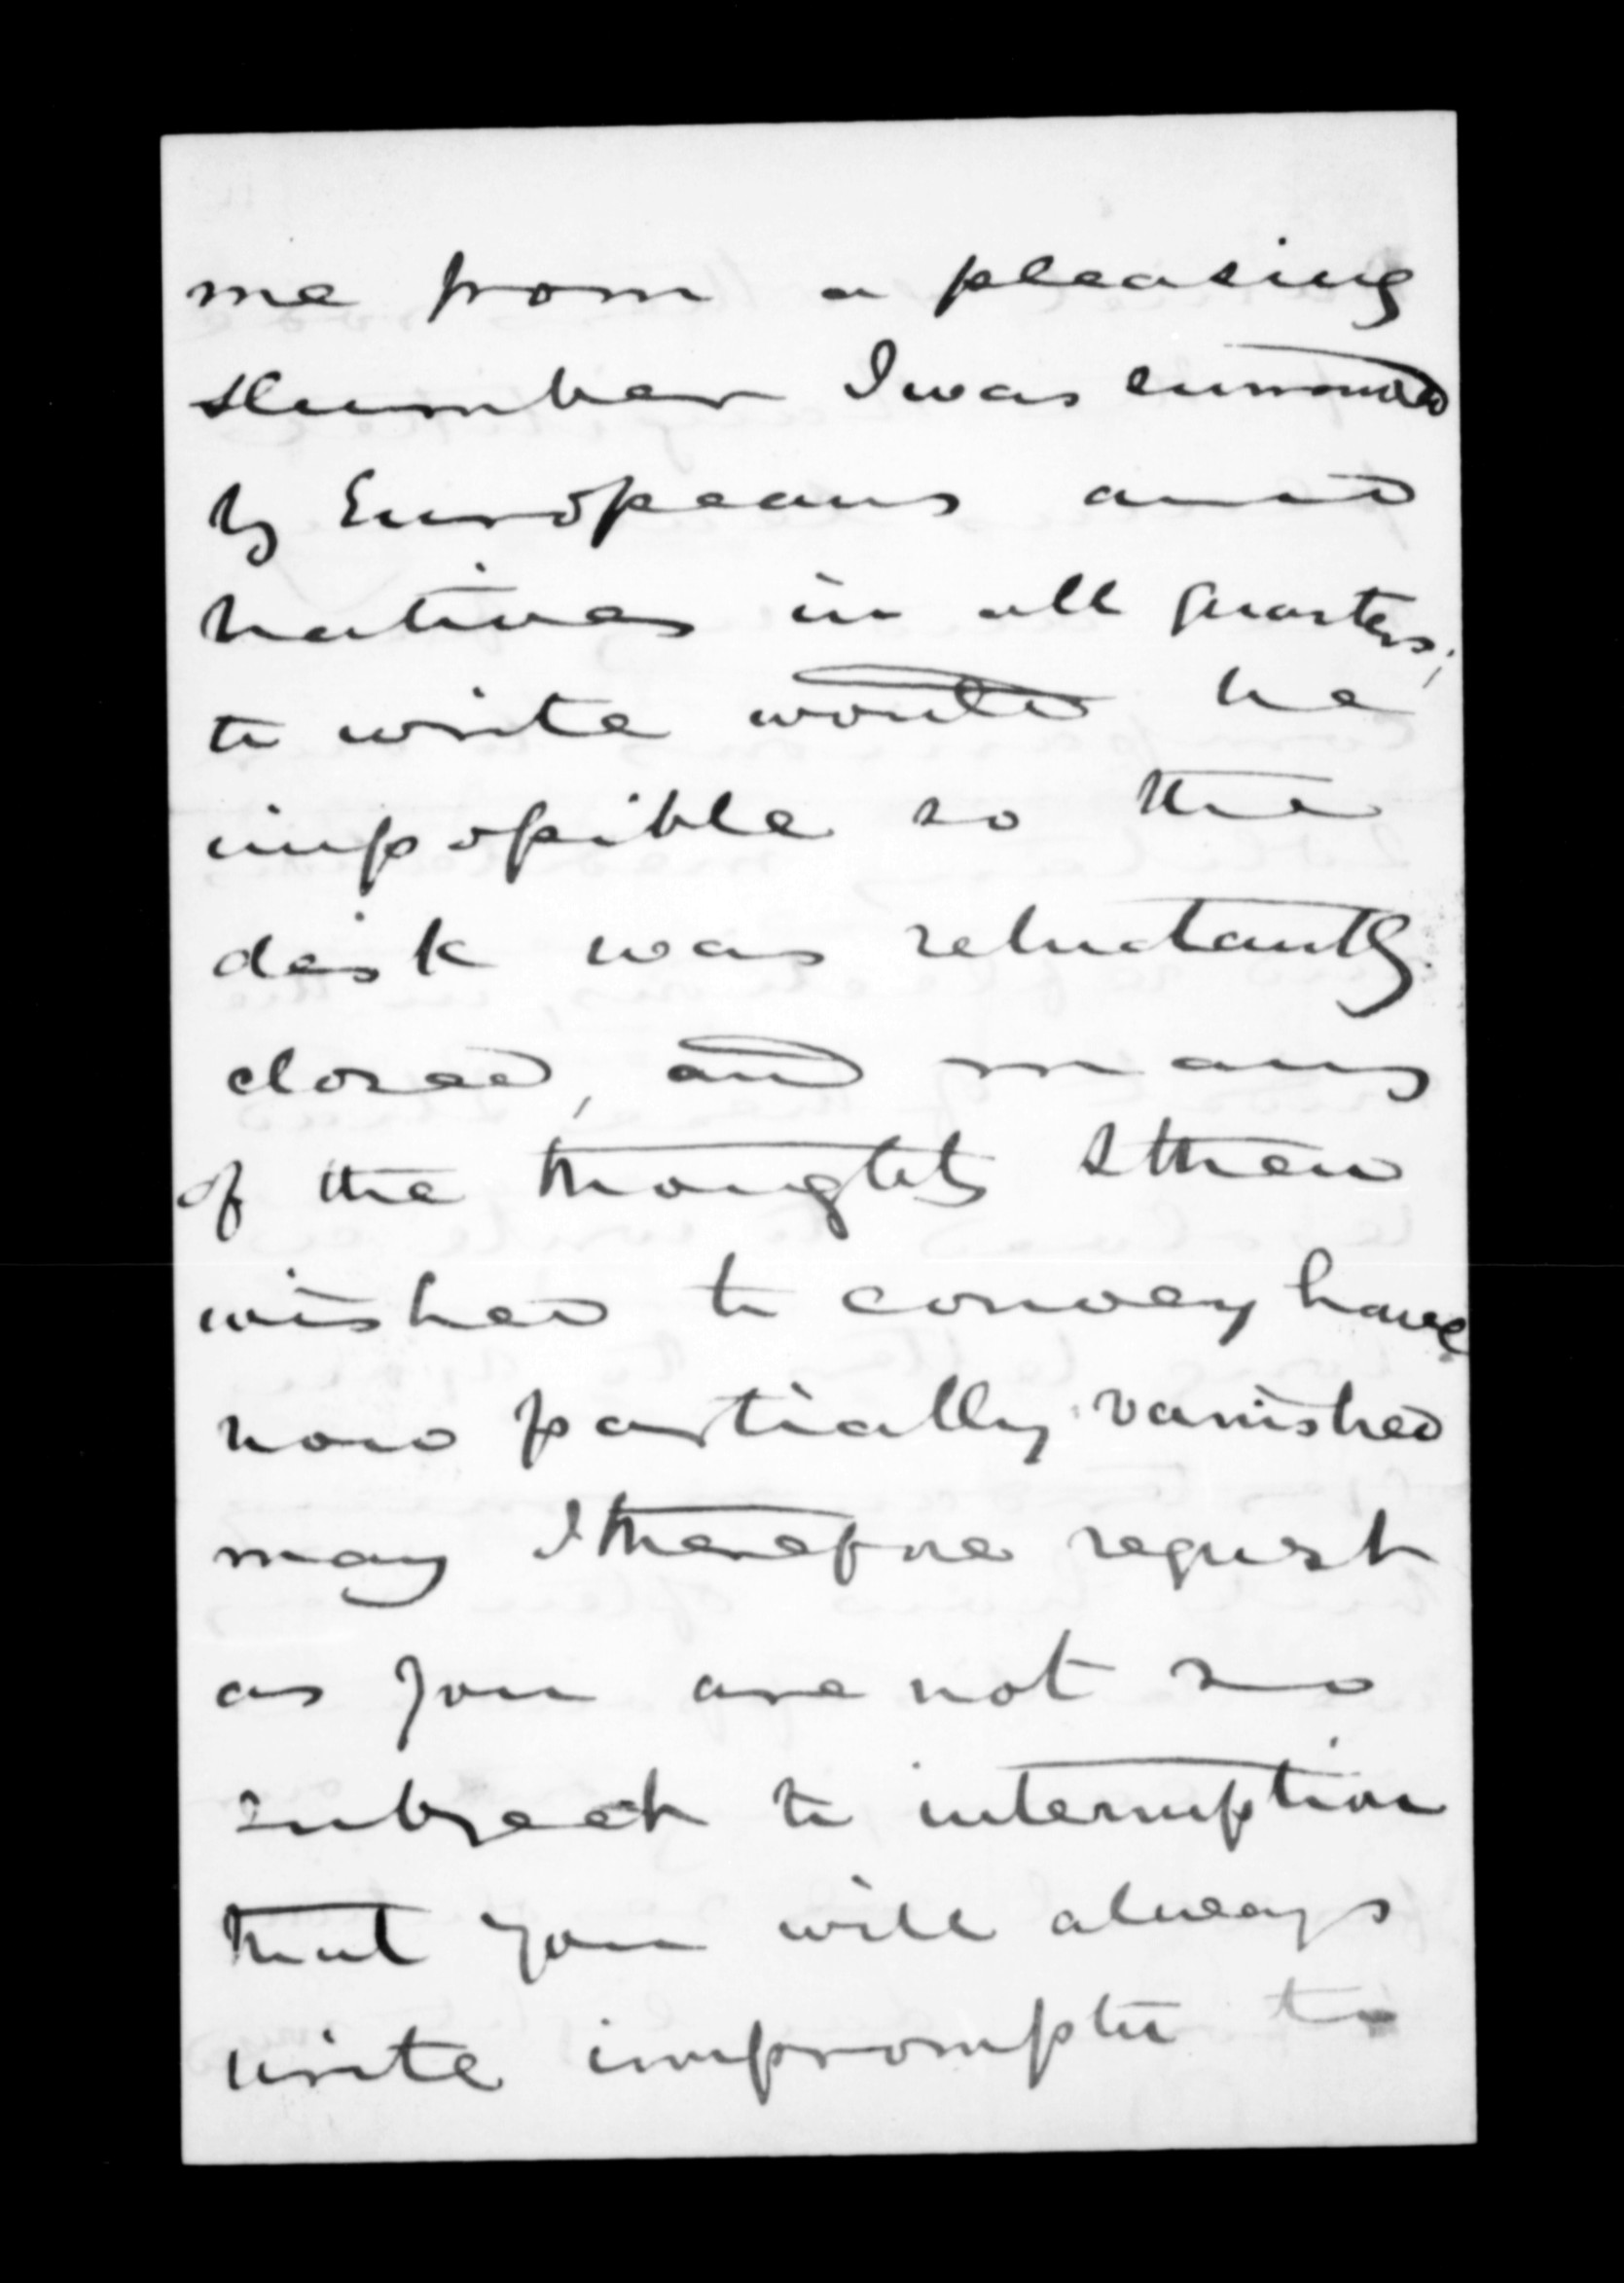 me from a pleasing
slumber I was summoned
by Europeans and
natives in all quarters;
to write would be
impossible so the
desk was reluctantly
closed, and many
of the thoughts I then
wished to convey have
now partially vanished
may I therefore request
as you are not so
subject to interruption
that you will always
write impromptu to